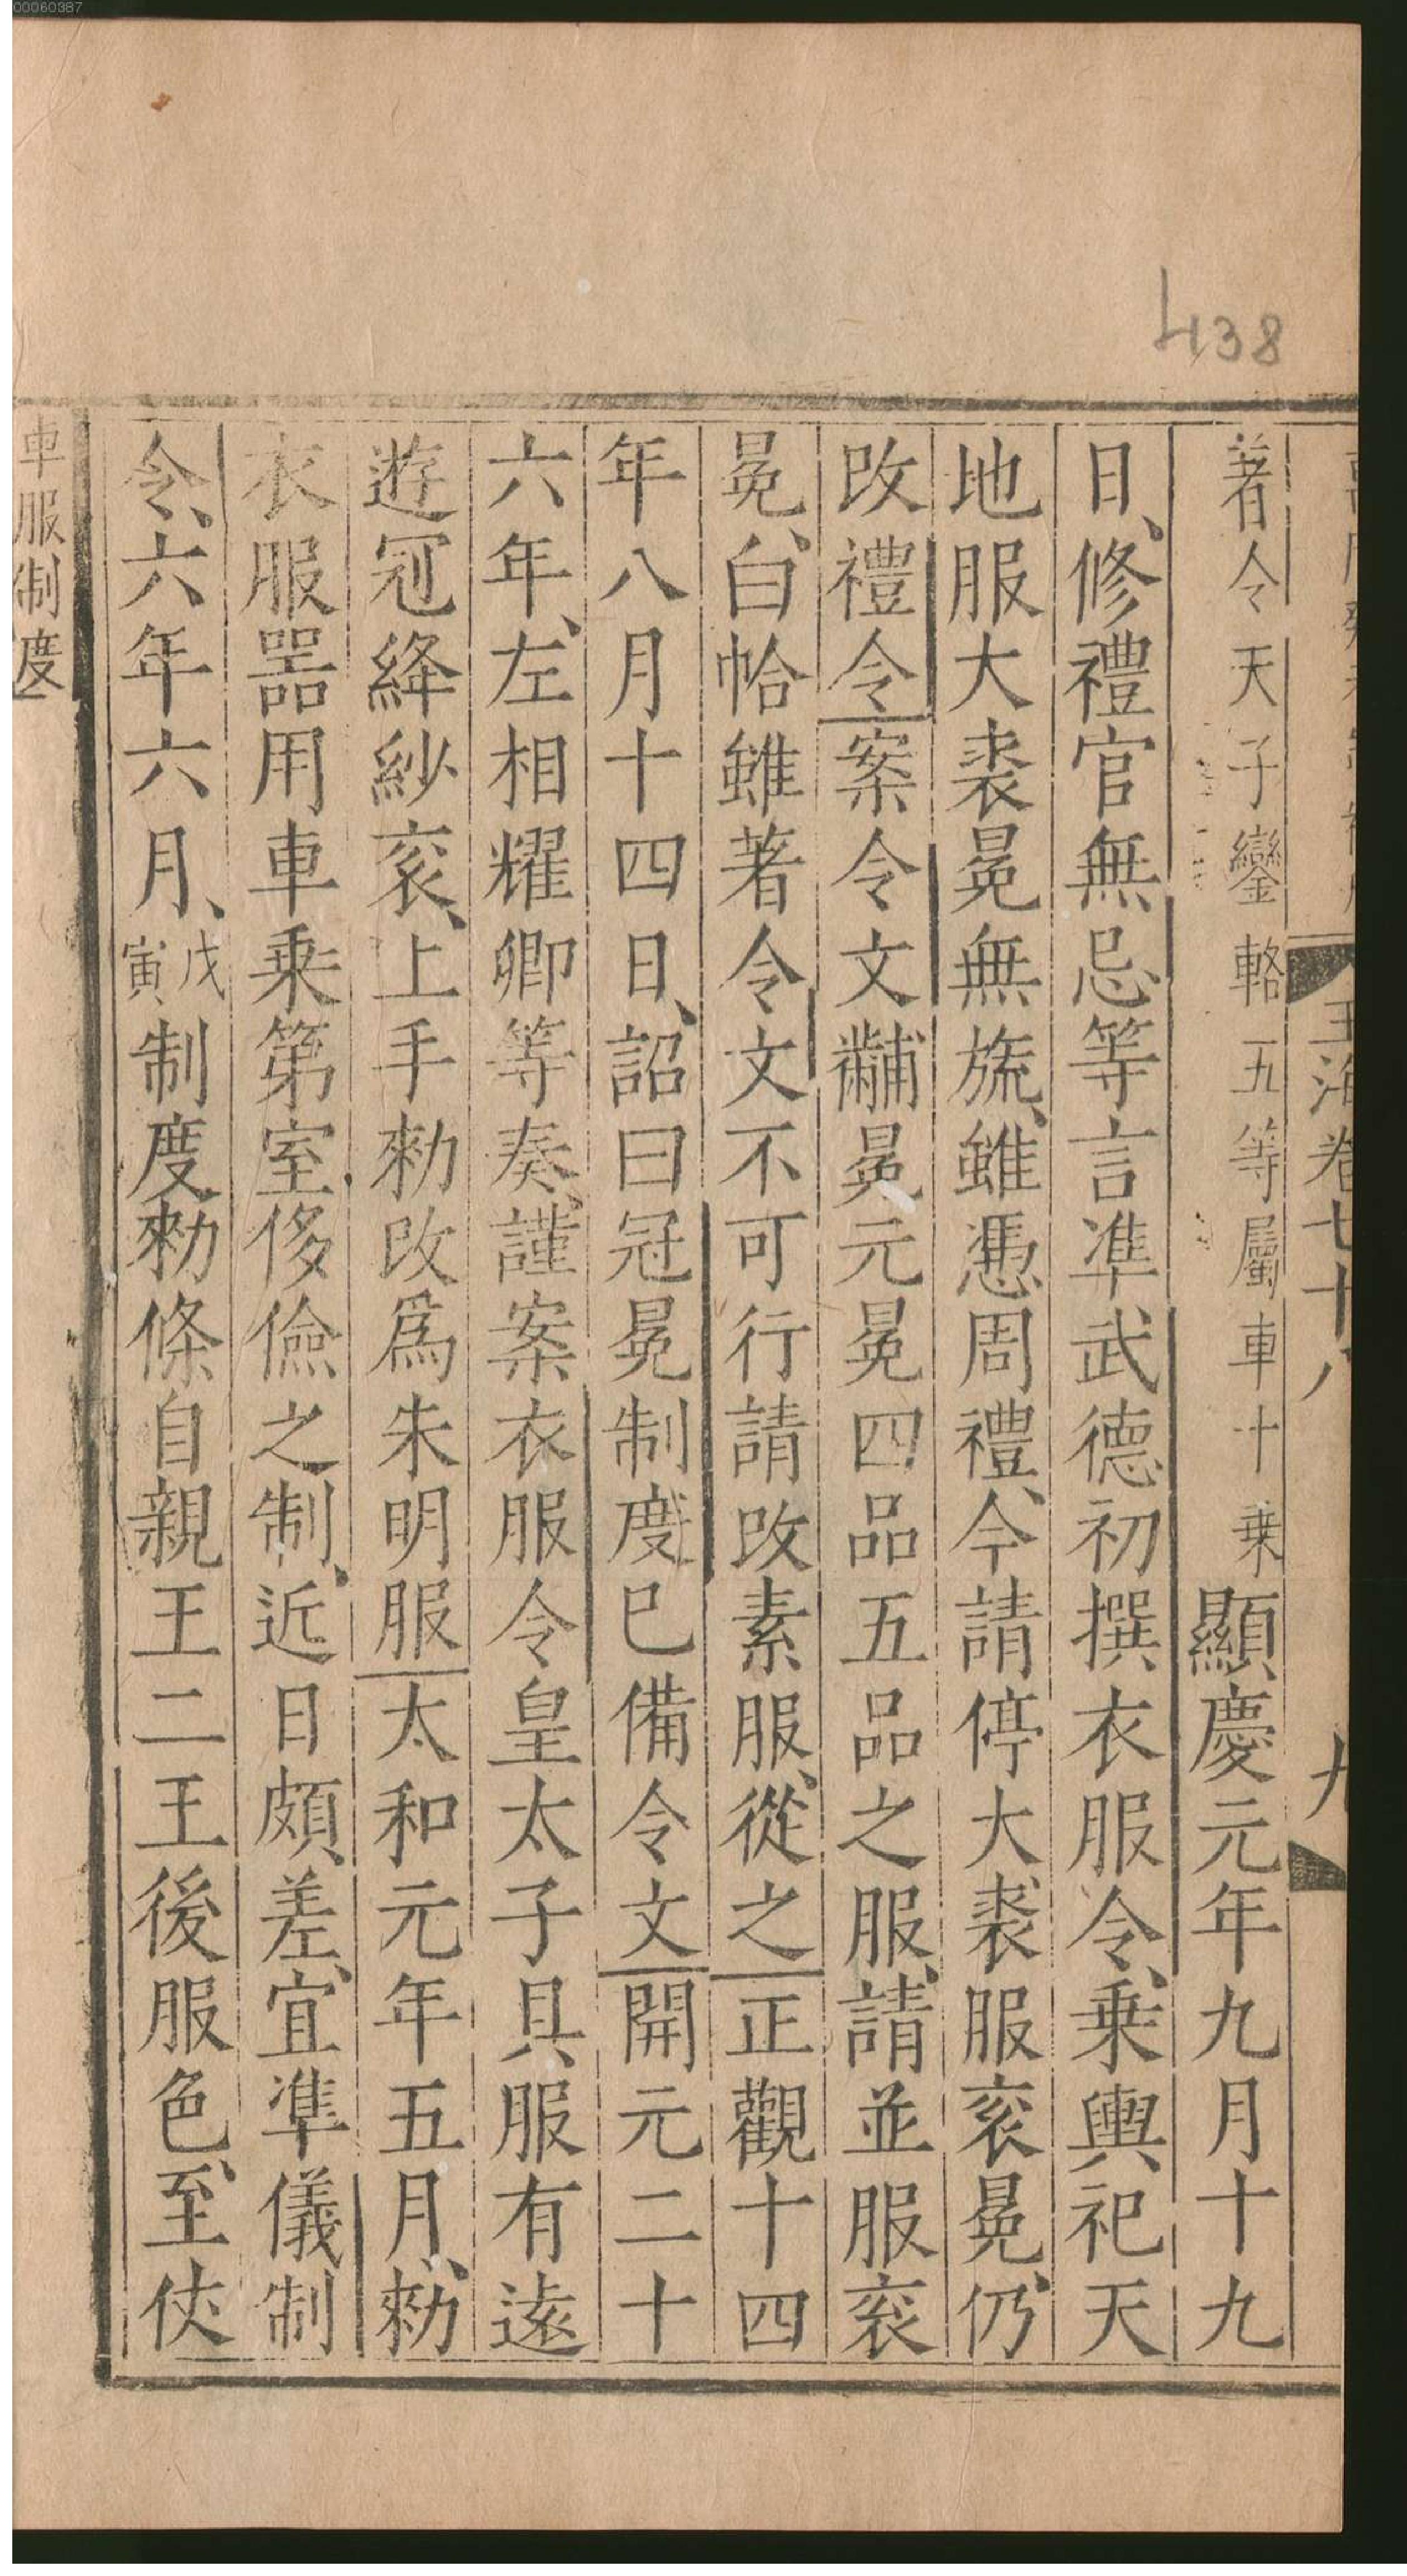 00060387
438
玉海卷七十八
九
著令天子鑾輅五等屬車十乗顯慶元年九月十九
日、修禮官無忌等言準武德初撰衣服令、乗輿祀天
地服大裘冕無旒、雖憑周禮、今請停大裘服衮冕、仍
改禮令案令文黼冕元冕四品五品之服、請並服衮
冕、白帢雖著令文不可行請改素服、從之正觀十四
年八月十四日、詔曰冠冕制度已備令文開元二十
六年、左相耀卿等奏、謹案衣服令皇太子具服有遠
遊冠絳紗衮、上手勑改為朱明服太和元年五月、勑
衣服噐用車乗第室侈儉之制、近日頗差、宜準儀制
令、六年六月、戊寅制度勑條自親王二王後服色、至使
車服制度